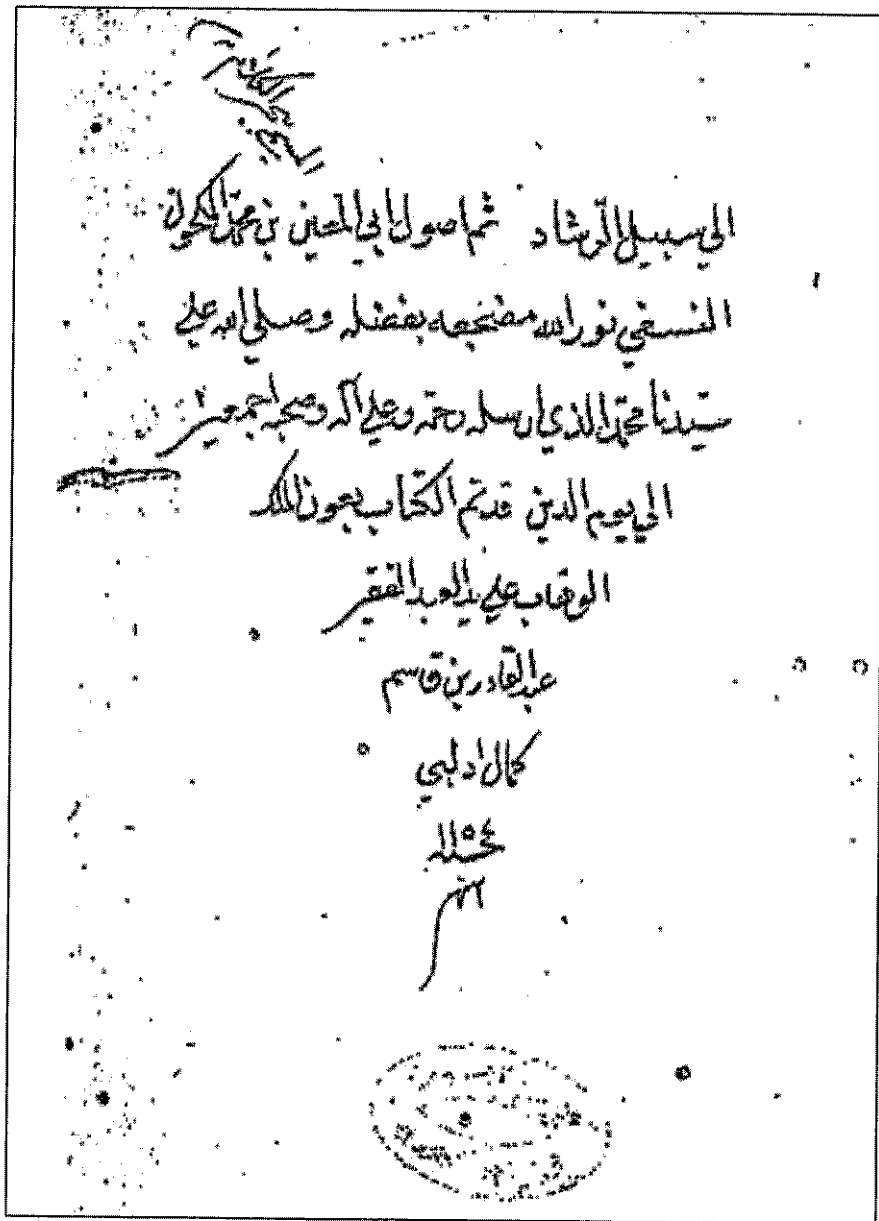 الي سبيل الرشاد ثم اصول ابي المعين بن محمد المكحول
النسفي نور الله مضجعه بفضله وصلي الله علي
سيدنا محمد الذي ارسله رحمة وعلي آله وصحبه اجمعين
الي يوم الدين قد تم الكتاب بعون الملك
الوهاب علي يد العبد الفقير
عبد القادر بن قاسم
كمال ادلبي